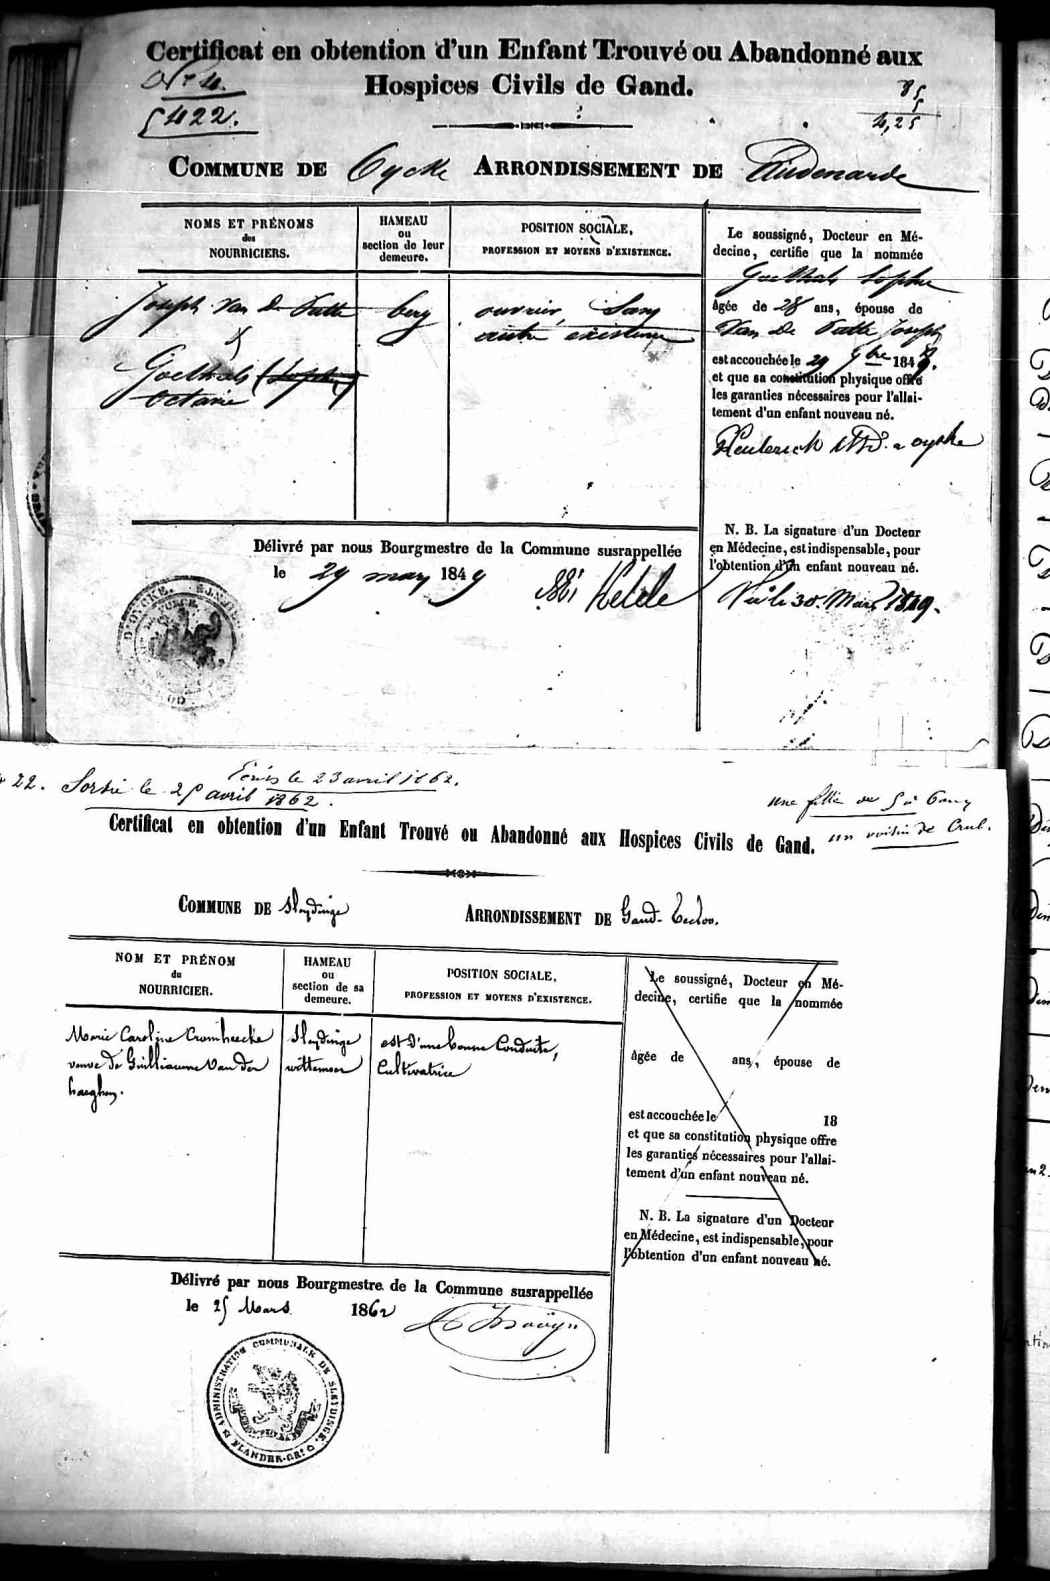 Certificat en obtention d'un Enfant Trouvé ou Abandonné aux
Hospices Civils de Gand.
N° 4.
5422.
85
5
4,25
COMMUNE DE Oycke ARRONDISSEMENT DE Audenarde
NOMS ET PRÉNOMS
des
NOURRICIERS.
HAMEAU
ou
section de leur
demeure.
POSITION SOCIALE,
PROFESSION ET MOYENS D'EXISTENCE.
Joseph Van de Putte
&
Goethals (Sophie)
Octavie
berg
ouvrier, Sans
autre existence
Le soussigné, Docteur en Mé-
decine, certifie que la nommée
Goethals Sophie
âgée de 28 ans, épouse de
Van De Putte Joseph
est accouchée le 29 9bre 184
et que sa constitution physique offre
les garanties nécessaires pour l'allai-
tement d'un enfant nouveau né.
a oycke
N. B. La signature d'un Docteur
en Médecine, est indispensable, pour
l'obtention d'un enfant nouveau né.
Vu le 30 Mars 1849.
Délivré par nous Bourgmestre de la Commune susrappellée
le 29 mars 1849
22. Sortie le 25 avril 1862.
Ecris le 23 avril 1862.
une fille de 5 à 6 ans
un voisin de Crul.
Certificat en obtention d'un Enfant Trouvé ou Abandonné aux Hospices Civils de Gand.
COMMUNE DE Sleydinge ARRONDISSEMENT DE Gand-Eecloo.
NOM ET PRÉNOM
du
NOURRICIER.
HAMEAU
ou
section de sa
demeure.
POSITION SOCIALE,
PROFESSION ET MOYENS D'EXISTENCE.
Marie Caroline Cromheecke
veuve de Guilliaume Van der
haeghen.
Sleydinge
wittemoer
est d'une bonne Conduite,
Cultivatrice
Le soussigné, Docteur en Mé-
decine, certifie que la nommée
âgée de ans, épouse de
est accouchée le 18
et que sa constitution physique offre
les garanties nécessaires pour l'allai-
tement d'un enfant nouveau né.
N. B. La signature d'un Docteur
en Médecine, est indispensable, pour
l'obtention d'un enfant nouveau né.
Délivré par nous Bourgmestre de la Commune susrappellée
le 25 Mars 1862
ADMINISTRATION COMMUNALE DE SLEIDINGE
FLANDER-OR.